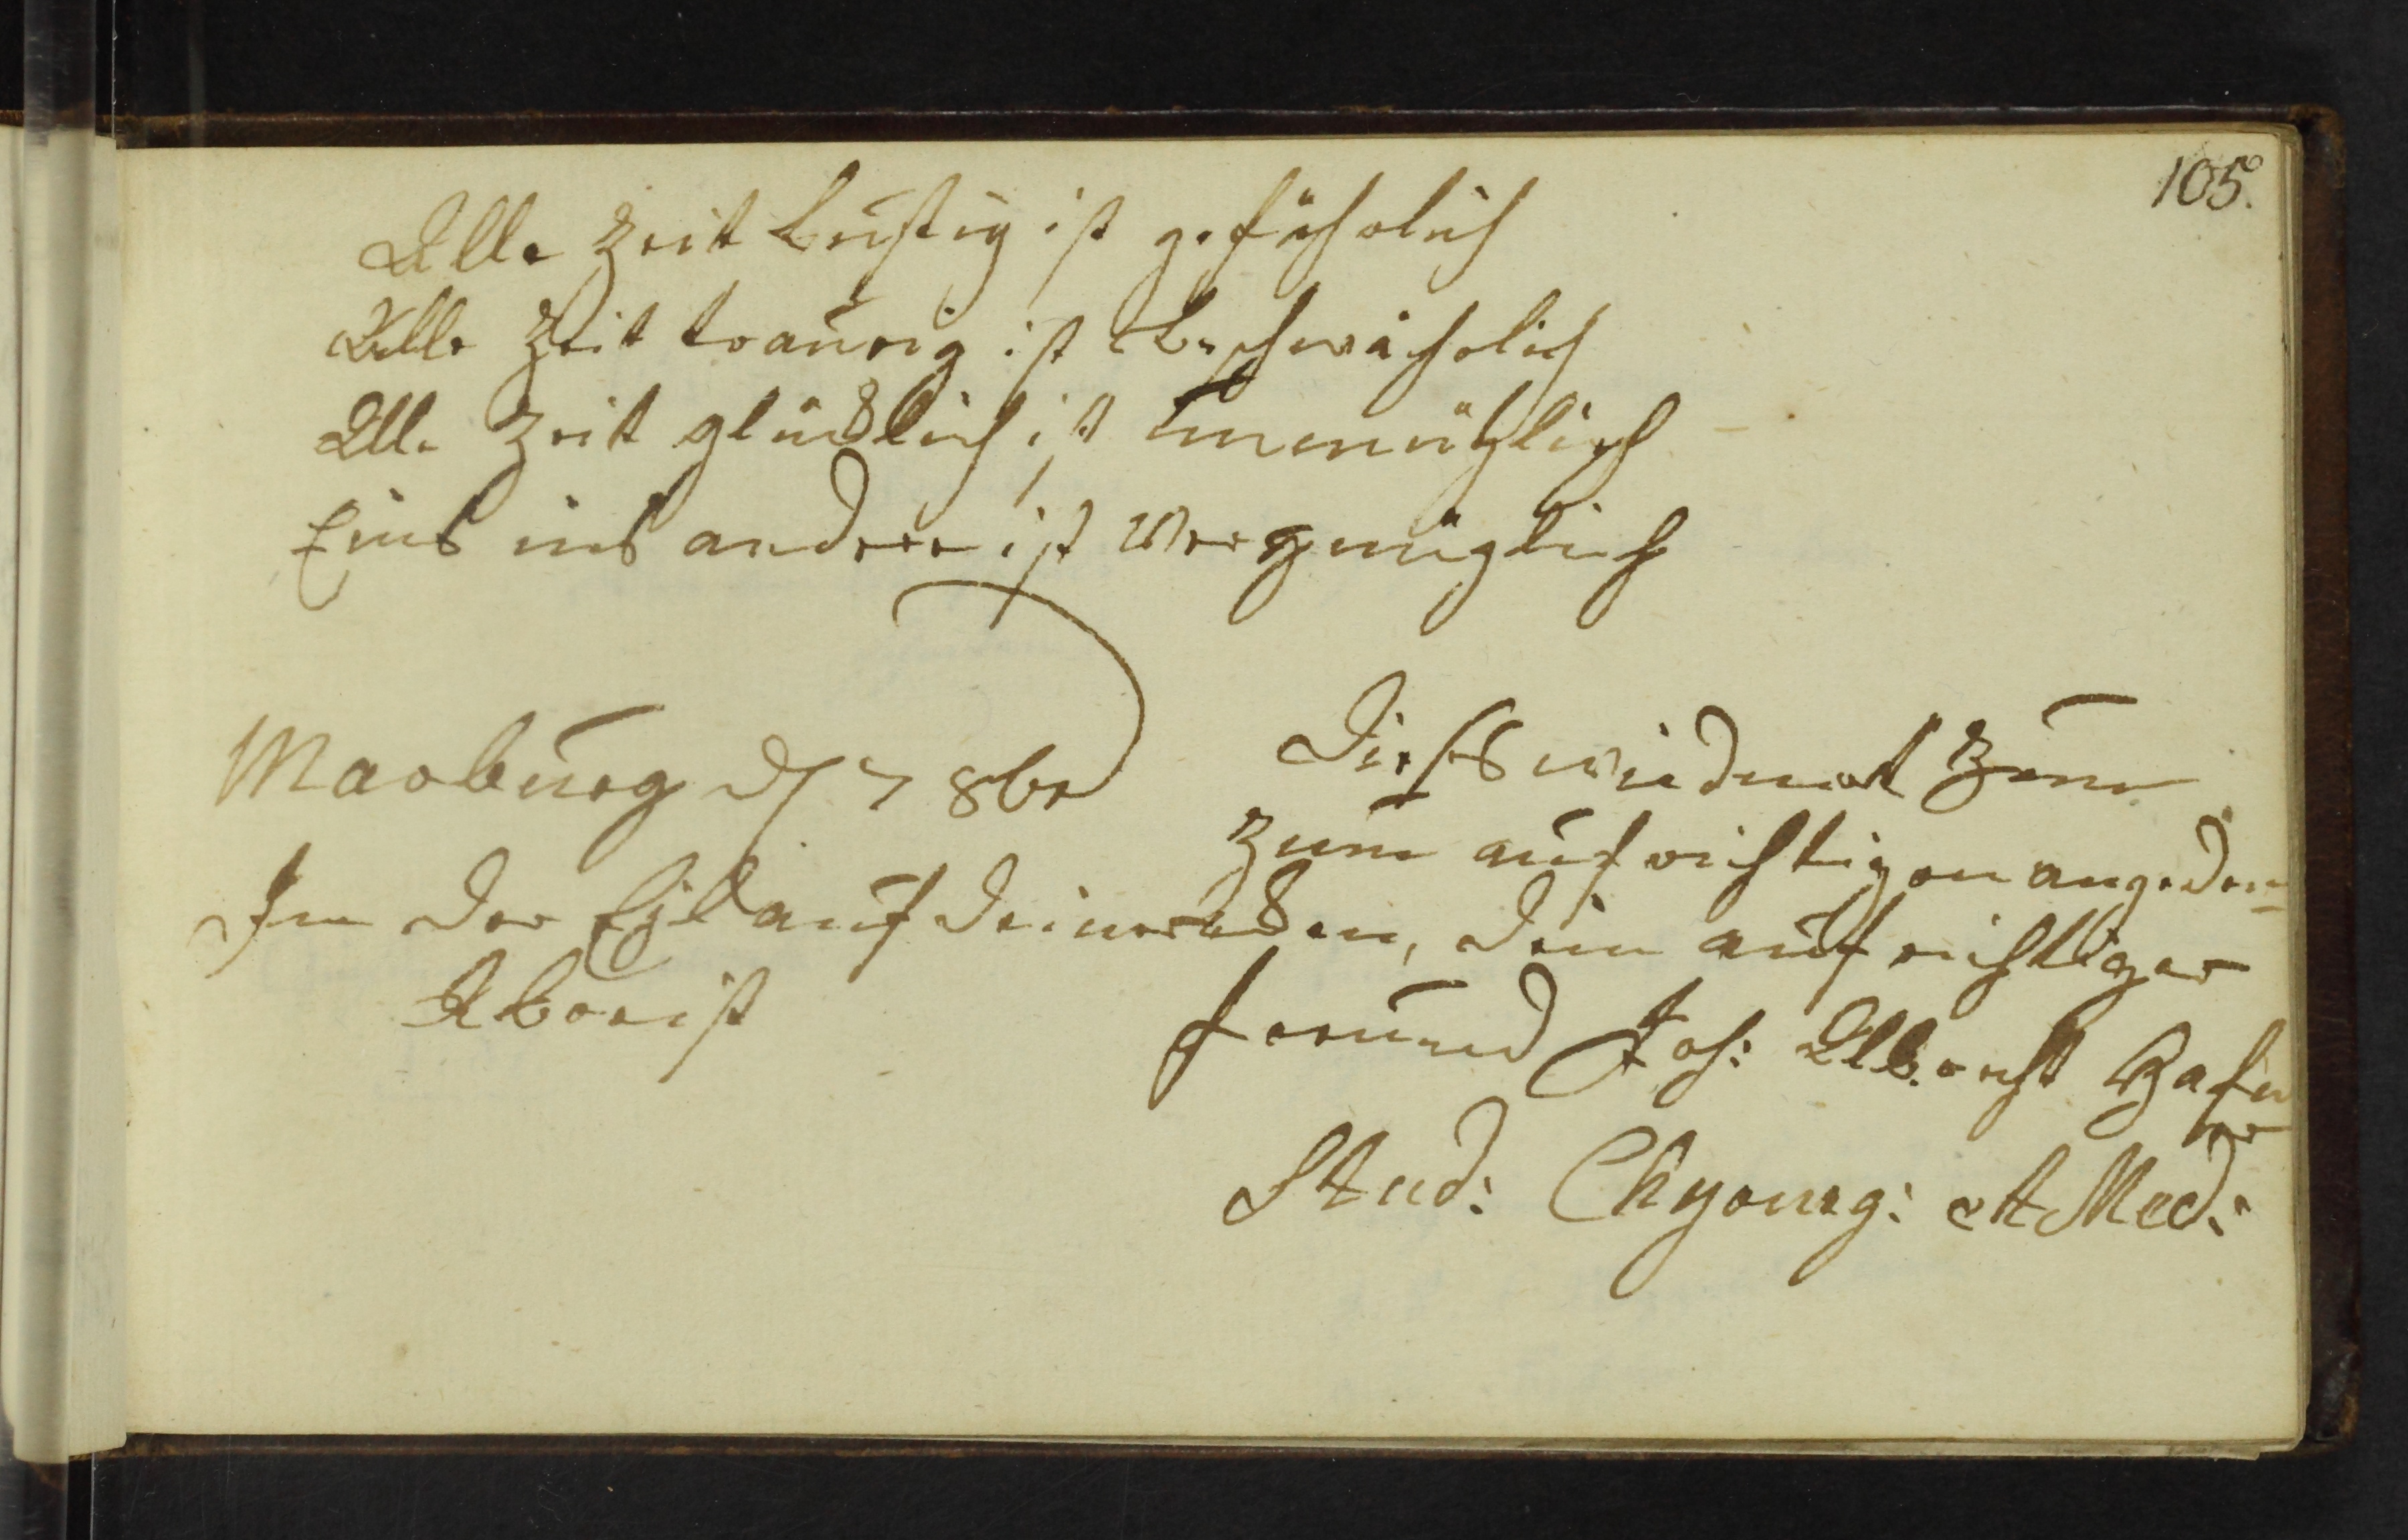 105.
Alle Zeit Lustig ist gefährlich
Alle Zeit traurig ist Beschwährlich
Alle Zeit glücklich ist
Eins ins andere ist Vergnüglich
Marburg d 7 8br
In der Eyl auf
Dieses widmet Zum
Zum aufrichtigen angeden=
ken, dein aufrichtiger
freund Joh: Albrecht
Stud: Chyourg: et Med: